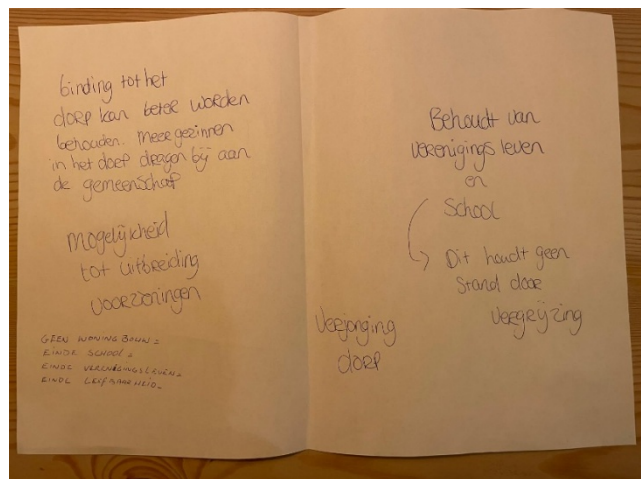 binding tot het
dorp kan beter worden
behouden. Meer gezinnen
in het dorp dragen bij aan
de gemeenschap
mogelijkheid
tot uitbreiding
voorzieningen
GEEN WONINGBOUW =
EINDE SCHOOL =
EINDE VERENIGINGSLEVEN =
EINDE LEEFBAARHEID =
Behoudt van
verenigings leven
en
School
Dit houdt geen
Stand door
Vergrijzing
Verjonging
dorp